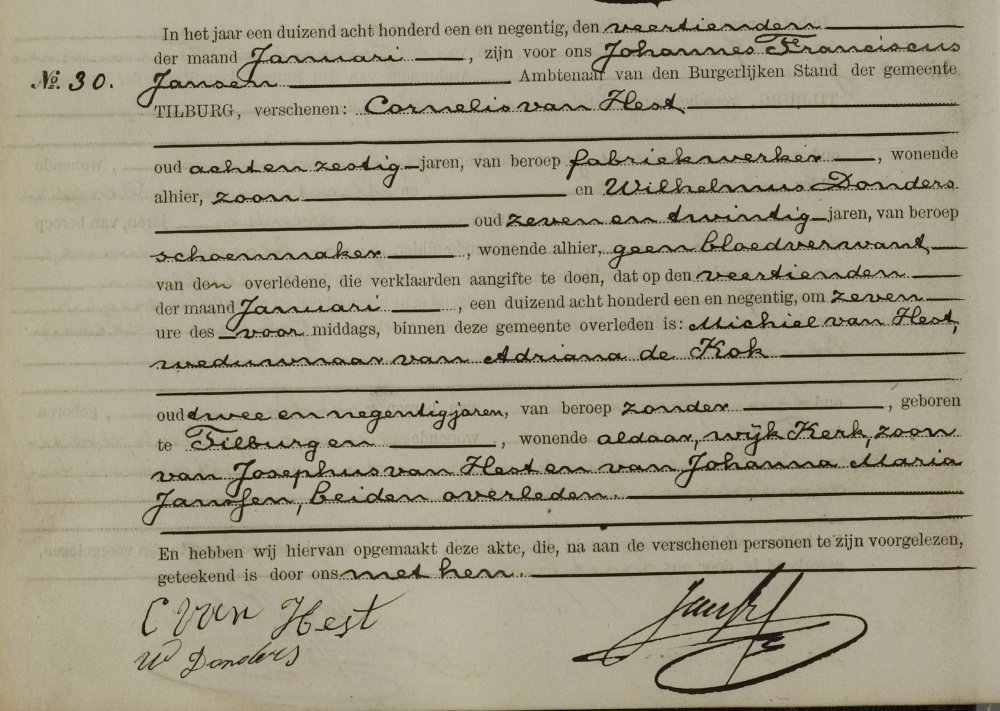 In het jaar een duizend acht honderd een en negentig, den veertienden
der maand Januari, zijn voor ons Johannes Franciscus
No. 30. Jansen Ambtenaar van den Burgerlijken Stand der gemeente
TILBURG, verschenen: Cornelis van Hest
oud acht en zestig jaren, van beroep fabriekwerker, wonende
alhier, zoon en Wilhelmus Donders
oud zeven en twintig jaren, van beroep
schoenmaker, wonende alhier, geen bloedverwant
van den overledene, die verklaarden aangifte te doen, dat op den veertienden
der maand Januari, een duizend acht honderd een en negentig, om zeven
ure des voor middags, binnen deze gemeente overleden is: Michiel van Hest,
weduwnaar van Adriana de Kok
oud twee en negentig jaren, van beroep zonder, geboren
te Tilburg en, wonende aldaar, wijk Kerk, zoon
van Josephus van Hest en van Johanna Maria
Janssen, beiden overleden.
En hebben wij hiervan opgemaakt deze akte, die, na aan de verschenen personen te zijn voorgelezen,
geteekend is door ons met hen.
C van Hest
W Donders